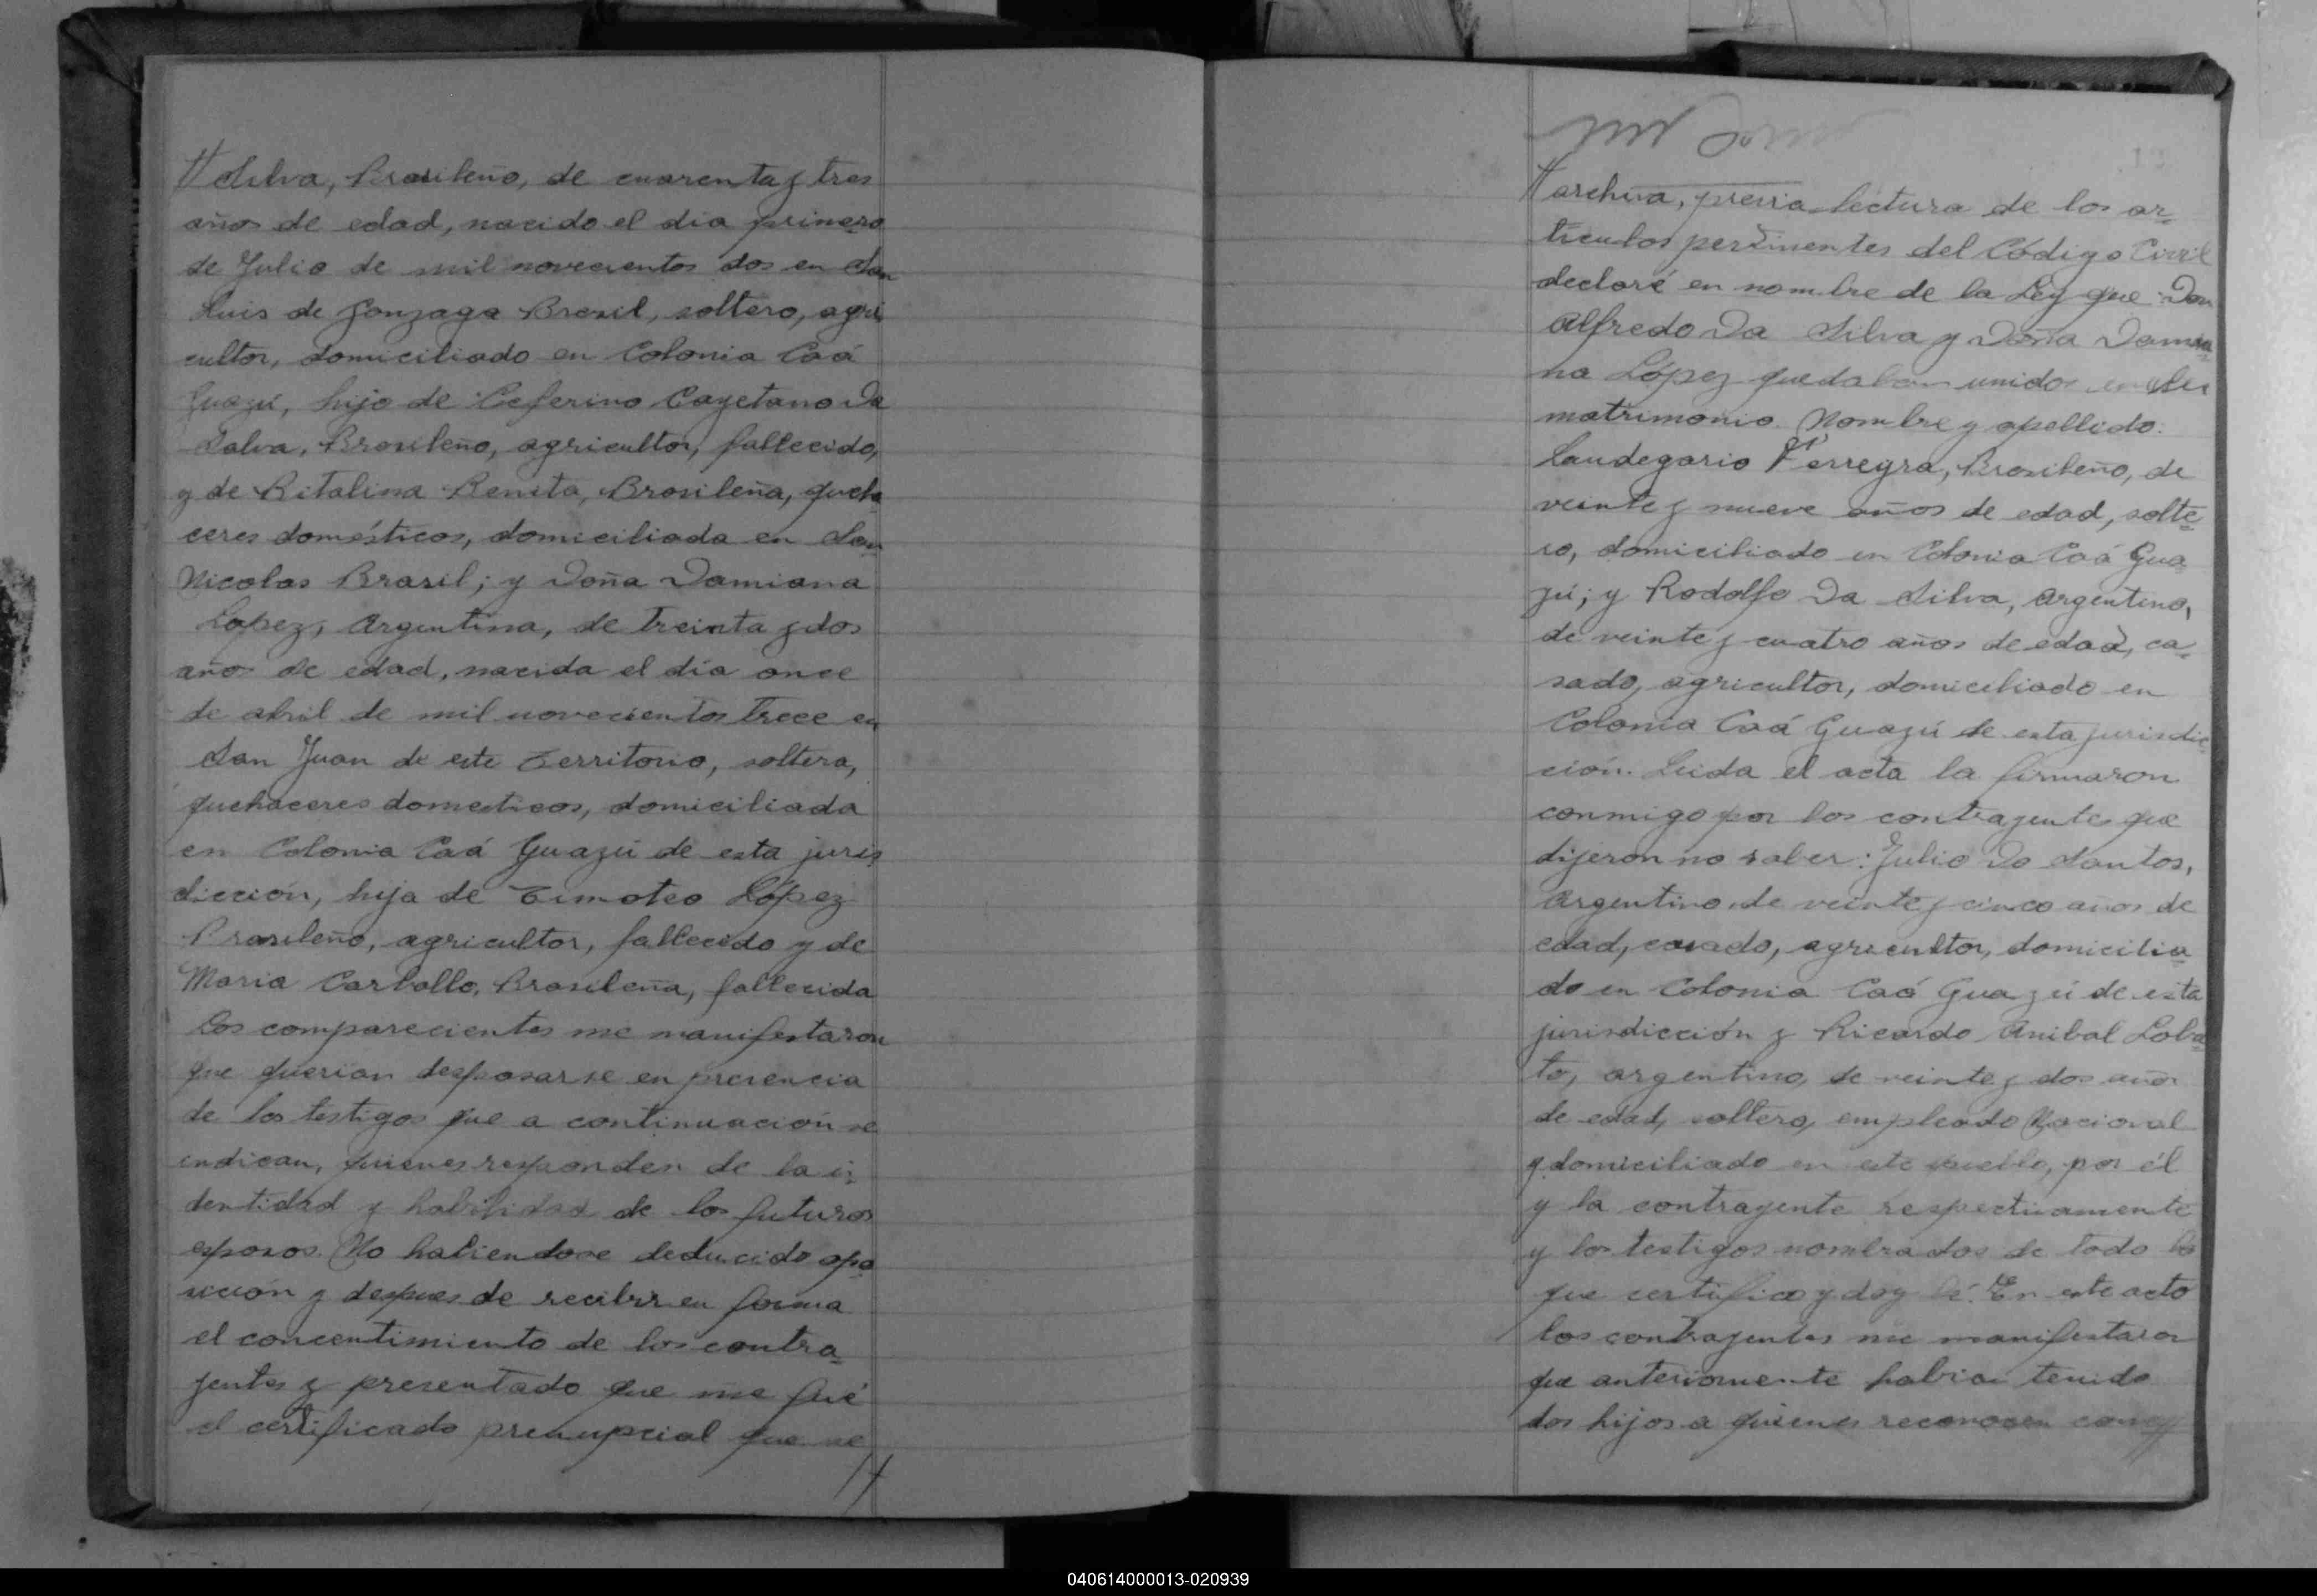 // Silva, Brasileño, de cuarenta y tres
años de edad, nacido el día primero
de Julio de mil novecientos dos en San
Luis de Gonzaga Brasil, soltero, agri
cultor, domiciliado en Colonia Caá
Guazú, hijo de Ceferino Cayetano Da
Salva, Brasileño, agricultor, fallecido,
y de Ritalina Benita, Brasileña, queha
ceres domésticos, domiciliada en San
Nicolas Brasil; y Doña Damiana
Lopez, Argentina, de treinta y dos
años de edad, nacida el día once
de abril de mil novecientos trece en
San Juan de este Territorio, soltera,
quehaceres domesticos, domiciliada
en Colonia Caá Guazú de esta juris
dicción, hija de Timoteo López
Brasileño, agricultor, fallecido y de
Maria Carballo, Brasileña, fallecida
Los comparecientes me manifestaron
que querian desposarse en presencia
de los testigos que a continuación se
indican, quienes responden de la i=
dentidad y habilidad de los futuros
esposos. No habiendose deducido opo=
sición y despues de recibir en forma
el concentimiento de los contra=
jentes y presentado que me fué
el certificado prenupcial que se
//
// archiva, previa lectura de los ar=
tículos pertinentes del Código Civil
declaré en nombre de la Ley que Don
Alfredo Da Silva y Doña Damia=
na López quedaban unidos en
matrimonio. Nombre y apellido:
Laudegario Ferreyra, Brasileño, de
veinte y nueve años de edad, solte=
ro, domiciliado en Colonia Caá Gua
zú; y Rodolfo Da Silva, Argentino,
de veinte y cuatro años de edad, ca=
sado, agricultor, domiciliado en
Colonia Caá Guazú de esta jurisdic=
ción. Leida el acta la firmaron
conmigo por los contrayentes que
dijeron no saber: Julio Do Santos,
Argentino, de veinte y cinco años de
edad, casado, agricultor, domicilia=
do en Colonia Caá Guazú de esta
jurisdicción y Ricardo Anibal Loba=
to, argentino, de veinte y dos años
de edad, soltero, empleado Nacional
y domiciliado en este pueblo, por él
y la contrayente respectivamente
y los testigos nombrados de todo lo
que certifico y doy fé. En este acto
los contrayentes me manifestaron
que anteriormente habian tenido
dos hijos a quienes reconocen como //
040614000013-020939